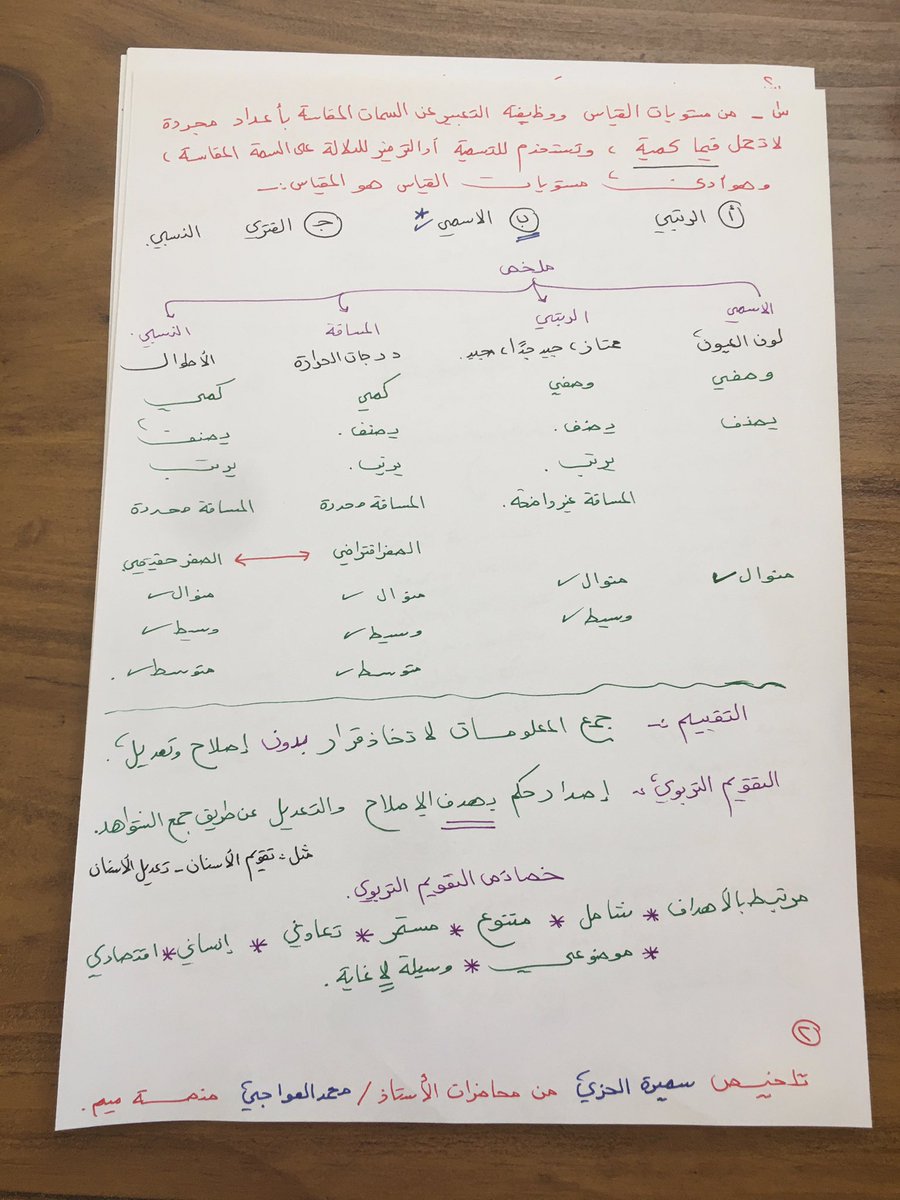 س - من مستويات القياس ووظيفته التعبير عن السمات المقاسة بأعداد مجردة
لا تحمل قيما كمية ، وتستخدم للتسمية أو الترميز للدلالة على السمة المقاسة ،
وهو أدنى مستويات القياس هو المقياس :-
أ الرتبي ب الاسمي ج الفتري النسبي.
ملخص
الاسمي الرتبي المسافة النسبي.
لون العيون ممتاز، جيد جدًا، جيد. درجات الحرارة الأطوال
وصفي وصفي كمي كمي
يصنف يصنف. يصنف. يصنف
يرتب. يرتب. يرتب
المسافة غير واضحة. المسافة محددة المسافة محددة
الصفر افتراضي الصفر حقيقي
منوال ✓ منوال ✓ منوال ✓ منوال ✓
وسيط ✓ وسيط ✓ وسيط ✓
متوسط ✓ متوسط ✓.
التقييم :- جمع المعلومات لاتخاذ قرار بدون إصلاح وتعديل.
التقويم التربوي :- إصدار حكم بهدف الإصلاح والتعديل عن طريق جمع الشواهد.
مثل: تقويم الأسنان - تعديل الأسنان
خصائص التقويم التربوي.
مرتبط بالأهداف * شامل * متنوع * مستمر * تعاوني * إنساني * اقتصادي
* موضوعي * وسيلة لا غاية.
٢
تلخيص سميرة الحزي من محاضرات الأستاذ / محمد العواجي منصة ميم.